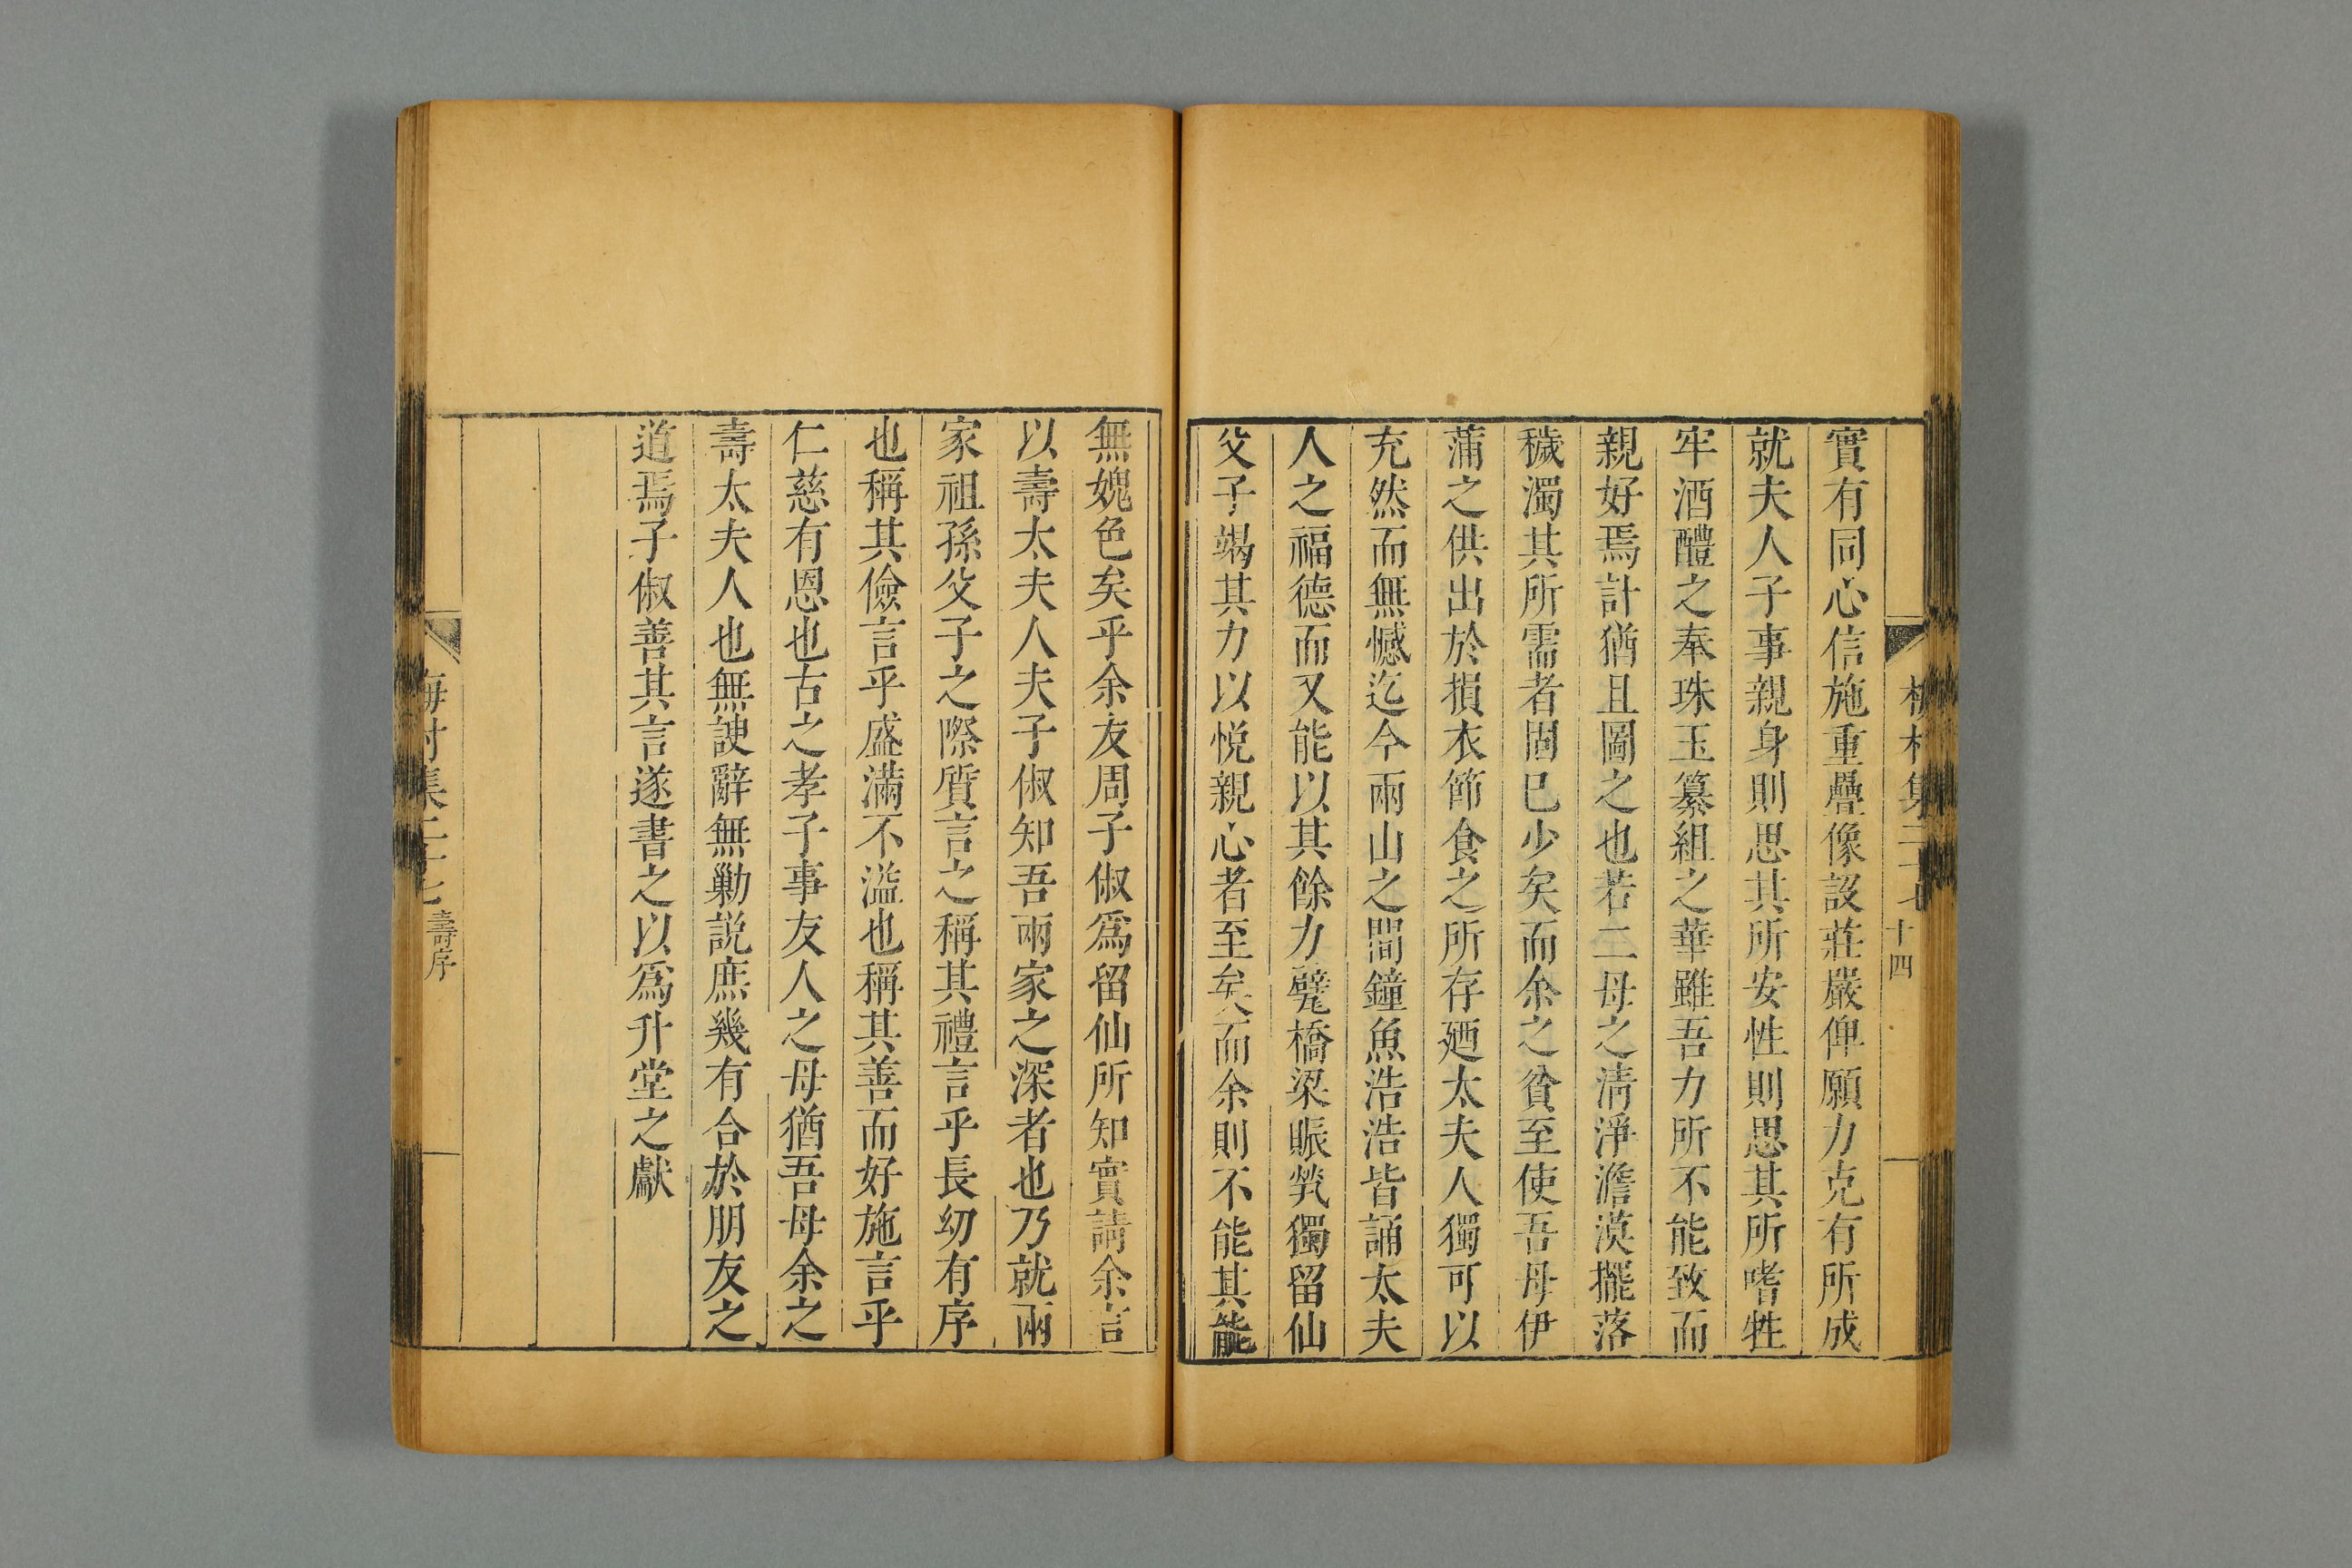 實有同心信施重疊像設莊嚴俾願力克有所成
就夫人子事親身則思其所安性則思其所嗜牲
牢酒醴之奉珠玉纂組之華雖吾力所不能致而
親好焉計猶且圖之也若二母之清淨澹漠擺落
穢濁其所需者固已少矣而余之貧至使吾母伊
蒲之供出於損衣節食之所存廼太夫人獨可以
充然而無憾迄今兩山之間鐘魚浩浩皆誦太夫
人之福德而又能以其餘力甓橋梁賑煢獨留仙
父子竭其力以悅親心者至矣而余則不能其能
十四
無媿色矣乎余友周子俶爲留仙所知實請余言
以壽太夫人夫子俶知吾兩家之深者也乃就兩
家祖孫父子之際質言之稱其禮言乎長幼有序
也稱其儉言乎盛滿不溢也稱其善而好施言乎
仁慈有恩也古之孝子事友人之母猶吾母余之
壽太夫人也無諛辭無勦説庶幾有合於朋友之
道焉子俶善其言遂書之以爲升堂之獻
梅村集二十七 壽序